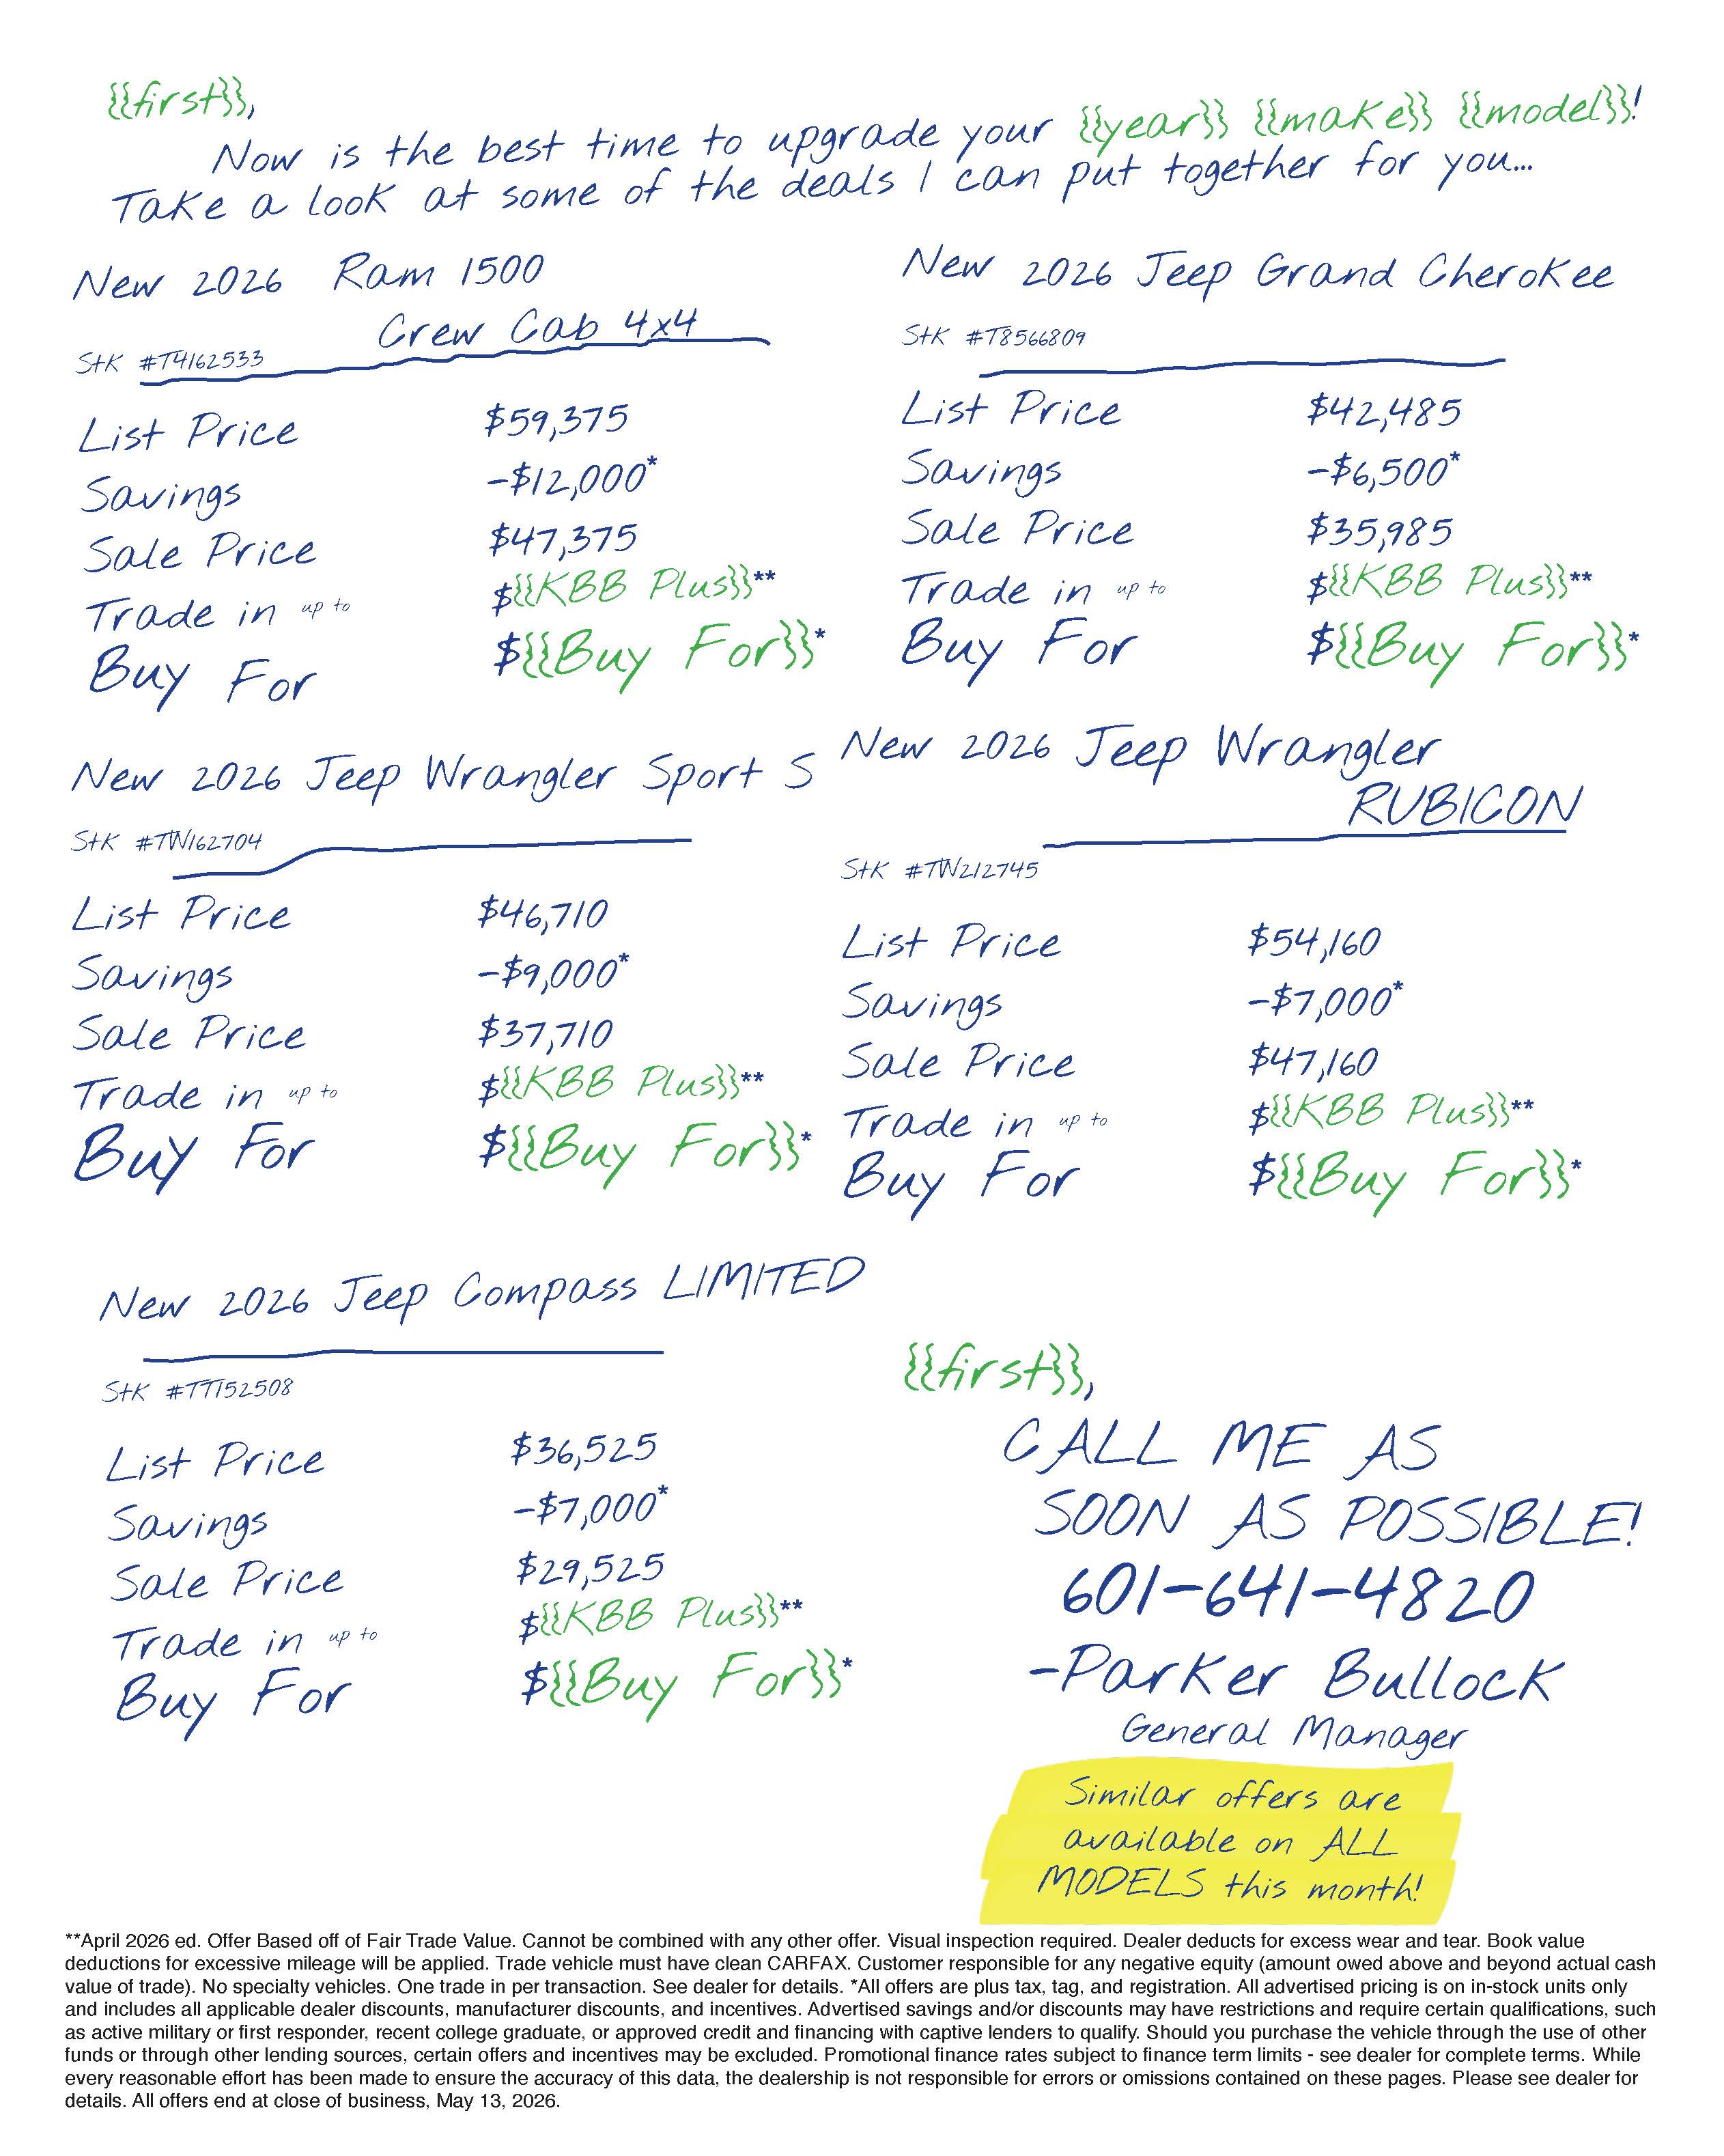 {{first}},
Now is the best time to upgrade your {{year}} {{make}} {{model}}!
Take a look at some of the deals I can put together for you...
New 2026 Ram 1500
Crew Cab 4x4
Stk #T4162533
List Price $59,375
Savings -$12,000*
Sale Price $47,375
Trade in up to ${{KBB Plus}}**
Buy For ${{Buy For}}*
New 2026 Jeep Grand Cherokee
Stk #T8566809
List Price $42,485
Savings -$6,500*
Sale Price $35,985
Trade in up to ${{KBB Plus}}**
Buy For ${{Buy For}}*
New 2026 Jeep Wrangler Sport S
Stk #TW162704
List Price $46,710
Savings -$9,000*
Sale Price $37,710
Trade in up to ${{KBB Plus}}**
Buy For ${{Buy For}}*
New 2026 Jeep Wrangler
RUBICON
Stk #TW212745
List Price $54,160
Savings -$7,000*
Sale Price $47,160
Trade in up to ${{KBB Plus}}**
Buy For ${{Buy For}}*
New 2026 Jeep Compass LIMITED
Stk #TT152508
List Price $36,525
Savings -$7,000*
Sale Price $29,525
Trade in up to ${{KBB Plus}}**
Buy For ${{Buy For}}*
{{first}},
CALL ME AS
SOON AS POSSIBLE!
601-641-4820
-Parker Bullock
General Manager
Similar offers are
available on ALL
MODELS this month!
**April 2026 ed. Offer Based off of Fair Trade Value. Cannot be combined with any other offer. Visual inspection required. Dealer deducts for excess wear and tear. Book value
deductions for excessive mileage will be applied. Trade vehicle must have clean CARFAX. Customer responsible for any negative equity (amount owed above and beyond actual cash
value of trade). No specialty vehicles. One trade in per transaction. See dealer for details. *All offers are plus tax, tag, and registration. All advertised pricing is on in-stock units only
and includes all applicable dealer discounts, manufacturer discounts, and incentives. Advertised savings and/or discounts may have restrictions and require certain qualifications, such
as active military or first responder, recent college graduate, or approved credit and financing with captive lenders to qualify. Should you purchase the vehicle through the use of other
funds or through other lending sources, certain offers and incentives may be excluded. Promotional finance rates subject to finance term limits - see dealer for complete terms. While
every reasonable effort has been made to ensure the accuracy of this data, the dealership is not responsible for errors or omissions contained on these pages. Please see dealer for
details. All offers end at close of business, May 13, 2026.